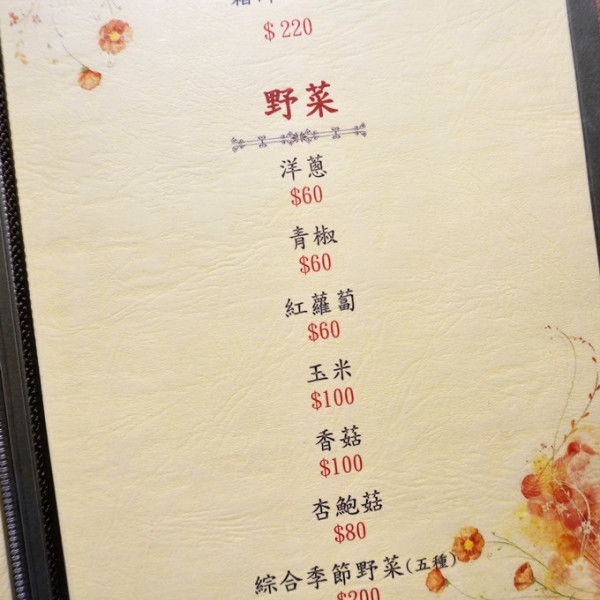 $220
野菜
洋蔥
$60
青椒
$60
紅蘿蔔
$60
玉米
$100
香菇
$100
杏鮑菇
$80
綜合季節野菜(五種)
$200